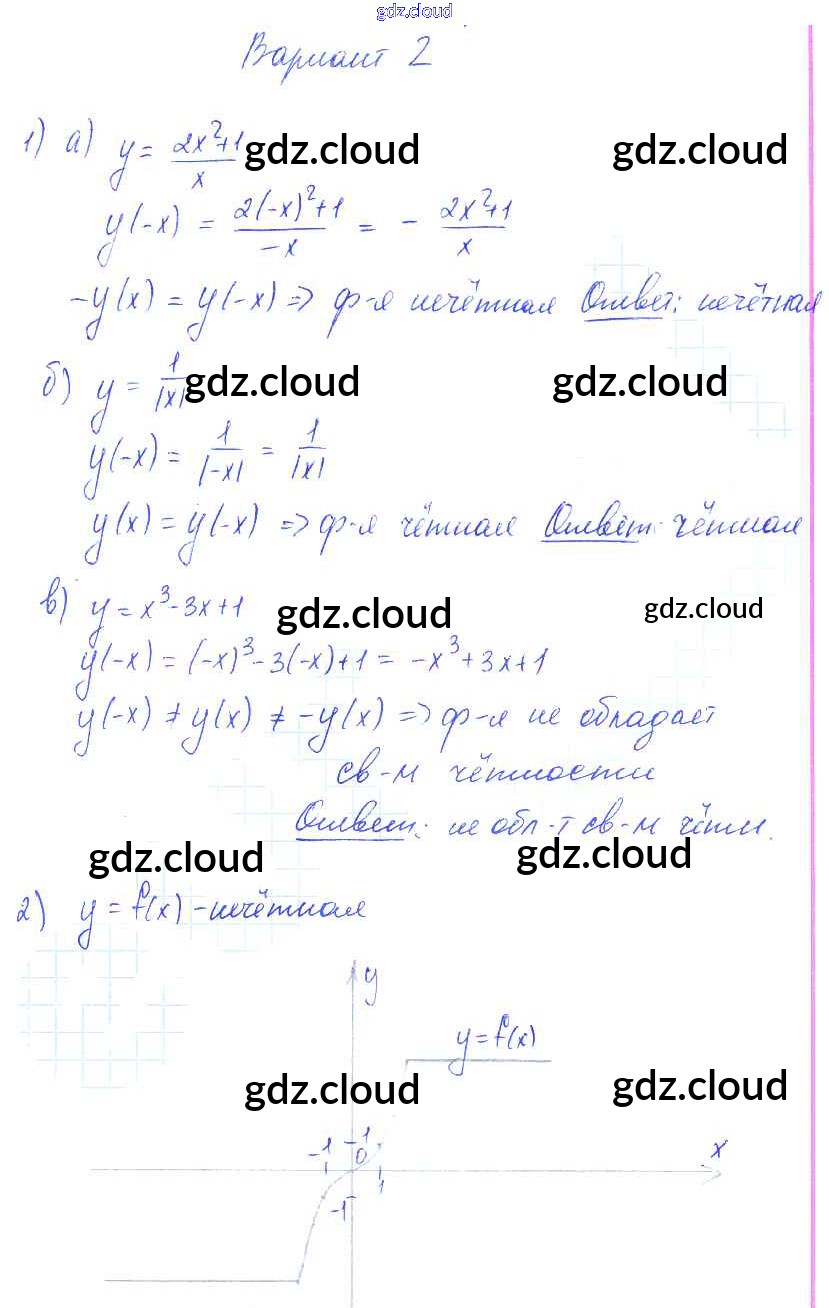 gdz.cloud
Вариант 2
1) а) y = (2x²+1)/x gdz.cloud gdz.cloud
y(-x) = (2(-x)²+1)/(-x) = - (2x²+1)/x
-y(x) = y(-x) => ф-я нечётная Ответ: нечётная
б) y = 1/|x| gdz.cloud gdz.cloud
y(-x) = 1/|-x| = 1/|x|
y(x) = y(-x) => ф-я чётная Ответ: чётная
в) y = x³-3x+1 gdz.cloud gdz.cloud
y(-x) = (-x)³-3(-x)+1 = -x³+3x+1
y(-x) ≠ y(x) ≠ -y(x) => ф-я не обладает
св-м чётности
Ответ: не обл-т св-м чётн.
gdz.cloud gdz.cloud
2) y = f(x) - нечётная
y
y=f(x)
gdz.cloud gdz.cloud
-1 1 0 x
1
-1